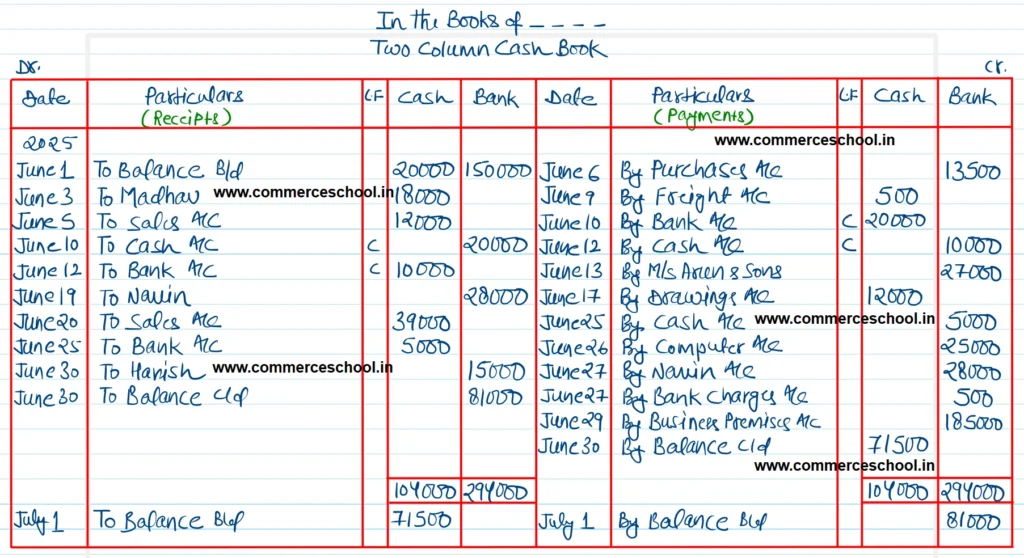 In the Books of ----
Two Column Cash Book
Dr. Cr.
Date Particulars LF Cash Bank Date Particulars LF Cash Bank
(Receipts) (Payments)
2025 www.commerceschool.in
June 1 To Balance B/d 20000 150000 June 6 By Purchases A/c 13500
June 3 To Madhav www.commerceschool.in 18000 June 9 By Freight A/c 500
June 5 To Sales A/C 12000 June 10 By Bank A/c C 20000
June 10 To Cash A/C C 20000 June 12 By Cash A/c C 10000
June 12 To Bank A/C C 10000 June 13 By M/s Arun & Sons 27000
June 19 To Navin 28000 June 17 By Drawings A/c 12000
June 20 To Sales A/c 39000 June 25 By Cash A/c www.commerceschool.in 5000
June 25 To Bank A/C 5000 June 26 By Computer A/c 25000
June 30 To Harish www.commerceschool.in 15000 June 27 By Navin A/c 28000
June 30 To Balance C/d 81000 June 27 By Bank Charges A/c 500
June 29 By Business Premises A/C 185000
June 30 By Balance C/d 71500
www.commerceschool.in
104000 294000 104000 294000
July 1 To Balance B/d 71500 July 1 By Balance B/d 81000